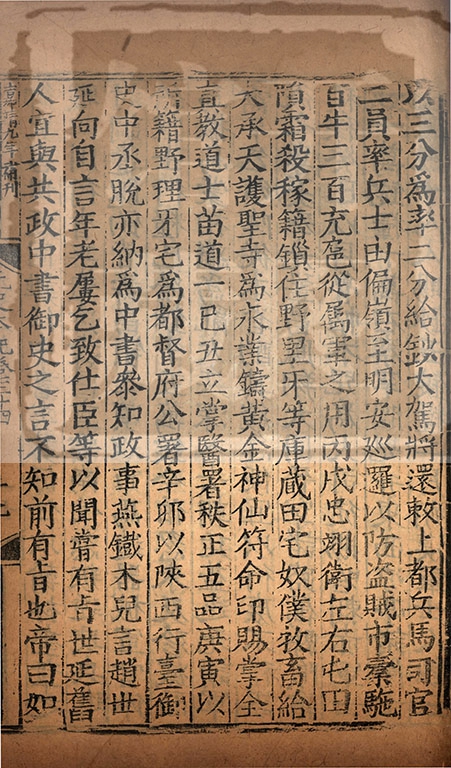 以三分爲率二分給鈔大駕將還敕上都兵馬司官
二員率兵士由偏嶺至明安廵羅以防盗賊市橐駞
百牛三百充扈從属軍之用丙戌忠翊衛左右屯田
隕霜殺稼籍鎖住野里牙等庫蔵田宅奴僕牧畜給
大承天護聖寺爲永業鑄黄金神仙符命印賜掌全
真教道士苗道一己丑立掌醫署秩正五品庚寅以
所籍野理牙宅爲都督府公署辛卯以陜西行臺御
史中丞脫亦納爲中書叅知政事燕鐵木兒言趙世
延向自言年老屢乞致仕臣等以聞嘗有㫖世延舊
人宜與共政中書御史之言不知前有㫖也帝曰如